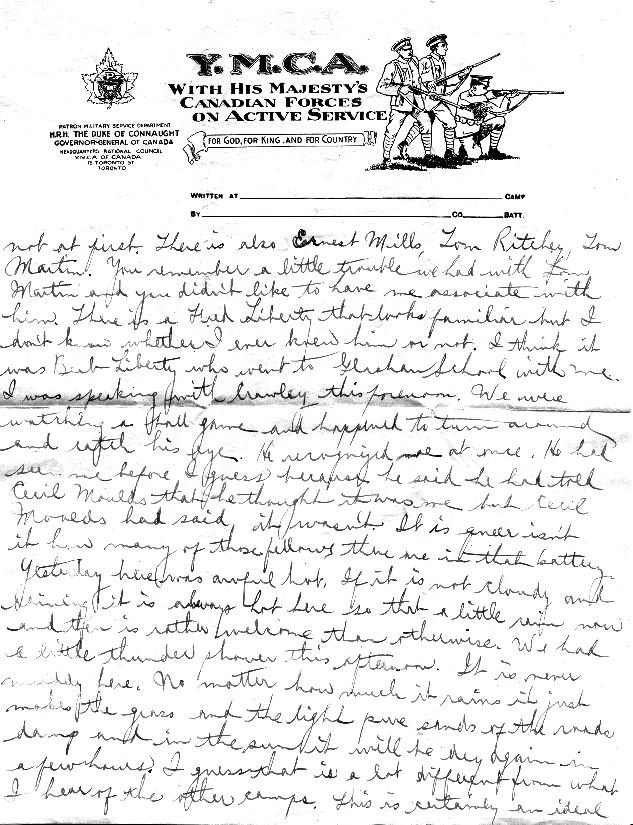 Y.M.C.A.
WITH HIS MAJESTY'S
CANADIAN FORCES
ON ACTIVE SERVICE
FOR GOD, FOR KING, AND FOR COUNTRY
PATRON MILITARY SERVICE DEPARTMENT
H.R.H. THE DUKE OF CONNAUGHT
GOVERNOR-GENERAL OF CANADA
HEADQUARTERS NATIONAL COUNCIL
Y.M.C.A. OF CANADA
15 TORONTO ST
TORONTO
WRITTEN AT CAMP
BY CO. BATT.
not at first. There is also Ernest Mills, Tom Ritchey, Tom
Martin. You remember a little trouble we had with Tom
Martin and you didn't like to have me associate with
him. There is a Fred Liberty that looks familiar but I
don't know whether I ever knew him or not. I think it
was Bert Liberty who went to School with me.
I was speaking with Crawley this forenoon. We were
watching a ball game and happened to turn around
and catch his eye. He recognized me at once. He had
seen me before I guess because he said he had told
Cecil Moulds that he thought it was me but Cecil
Moulds had said, it wasn't. It is queer isn't
it how many of those fellows there are in that battery.
Yesterday here was awful hot. If it is not cloudy and
raining it is always hot here so that a little rain now
and then is rather welcome than otherwise. We had
a little thunder shower this afternoon. It is never
muddy here. No matter how much it rains it just
makes the grass and the light pure sands of the roads
damp and in the sun it will be dry again in
a few hours. I guess that is a lot different from what
I hear of the other camps. This is certainly an ideal